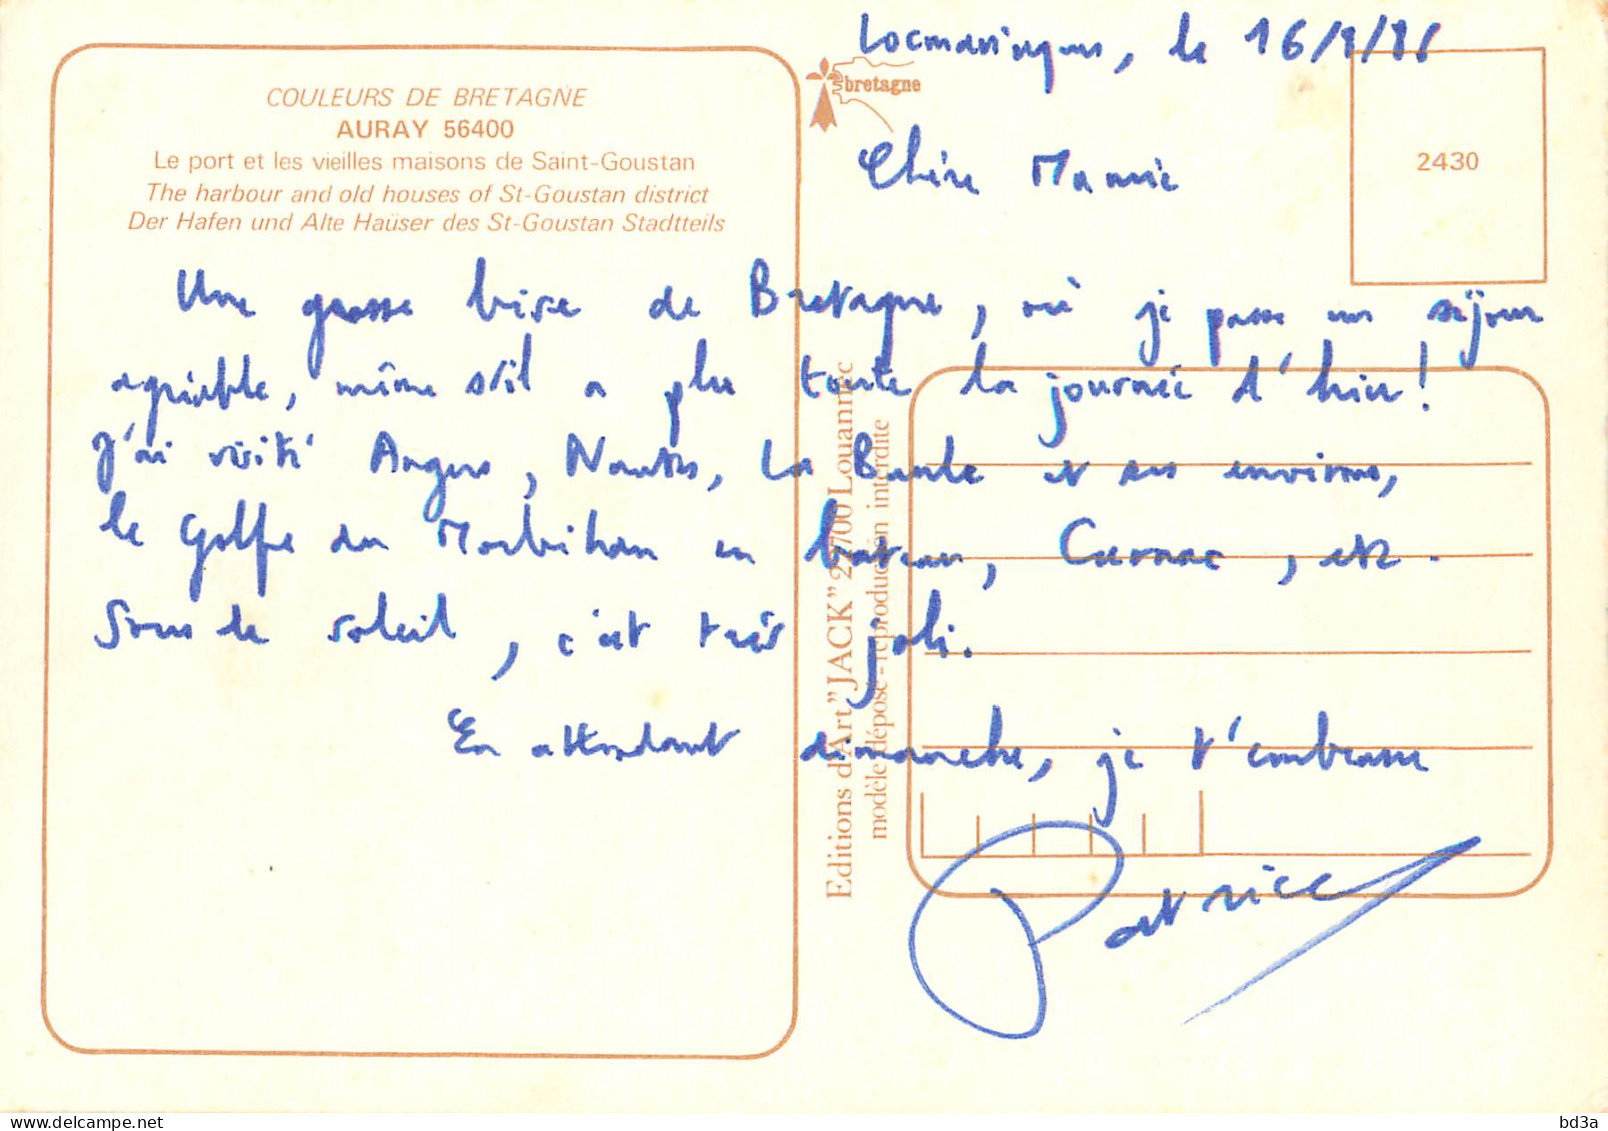 COULEURS DE BRETAGNE
AURAY 56400
Le port et les vieilles maisons de Saint-Goustan
The harbour and old houses of St-Goustan district
Der Hafen und Alte Haüser des St-Goustan Stadtteils
bretagne
2430
Locmariaquer, le 16/8/86
Chère Mamie
Une grosse bise de Bretagne, où je passe un séjour
agréable, même s'il a plu toute la journée d'hier!
J'ai visité Angers, Nantes, La Baule et ses environs,
le Golfe du Morbihan en bateau, Carnac, etc.
Sous le soleil, c'est très joli.
En attendant dimanche, je t'embrasse
Patrice
Editions d'Art "JACK" 22700 Louannec
modèle déposé - reproduction interdite
bd3a